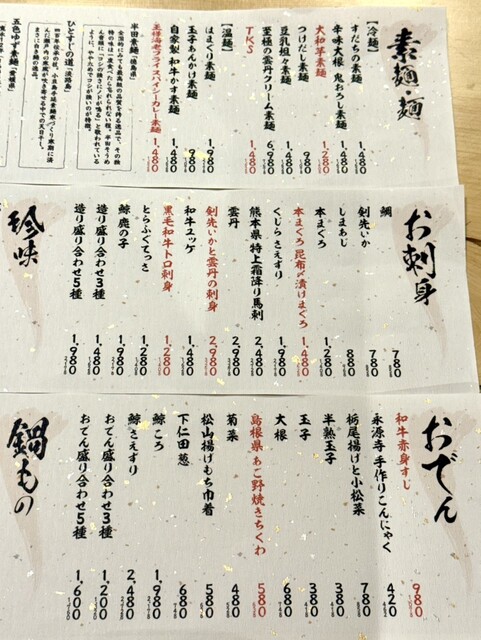 素麺・麺
【冷麺】
すだちの素麺 1,480
辛味大根 鬼おろし素麺 1,480
大和芋素麺 1,280
つけだし素麺 980
豆乳坦々素麺 1,480
至極の雲丹クリーム素麺 6,980
TKS 1,480
【温麺】
はまぐり素麺 1,980
玉子あんかけ素麺 980
自家製 和牛かす素麺 1,480
王様海老フライスパイシーカレー素麺 1,480
半田素麺「徳島県」
全国的にみても最高級の品質を誇る逸品で、その独
特の味は一度食べたら忘れられない程。半田そうめ
ように、やや太めでコシが強いのが特徴。
ひとすじの道「淡路島」
五色ゆず素麺「愛媛県」
お刺身
鯛 780
剣先いか 780
しまあじ 880
本まぐろ 1,280
本まぐろ 昆布〆漬けまぐろ 1,480
くじらさえずり 1,980
熊本県 特上霜降り馬刺 2,480
雲丹 2,980
剣先いかと雲丹の刺身 2,980
和牛ユッケ 1,480
黒毛和牛トロ刺身 1,280
とらふぐてっさ 1,280
鯨鹿の子 1,980
造り盛り合わせ3種 1,480
造り盛り合わせ5種 1,980
珍味
おでん
和牛赤身すじ 980
永源寺 手作りこんにゃく 420
栃尾揚げと小松菜 780
半熟玉子 380
玉子 380
大根 680
島根県 あご野焼きちくわ 580
菊菜 480
松山揚げもち巾着 580
下仁田葱 680
鯨ころ 1,980
鯨さえずり 2,480
おでん盛り合わせ3種 1,200
おでん盛り合わせ5種 1,600
鍋もの